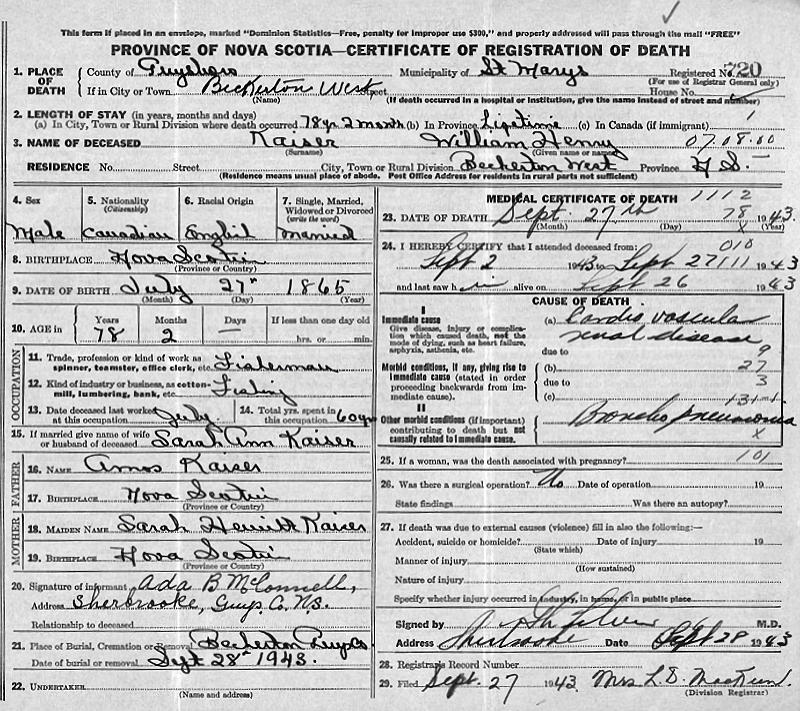 This form if placed in an envelope, marked "Dominion Statistics—Free, penalty for improper use $300," and properly addressed will pass through the mail "FREE"
PROVINCE OF NOVA SCOTIA—CERTIFICATE OF REGISTRATION OF DEATH
1. PLACE OF DEATH County of Guysboro Municipality of St Marys Registered No. 720
(For use of Registrar General only)
If in City or Town Beckerton West Street House No.
(Name) (If death occurred in a hospital or institution, give the name instead of street and number)
2. LENGTH OF STAY (in years, months and days)
(a) In City, Town or Rural Division where death occurred 78 yr 2 month (b) In Province Lifetime (c) In Canada (if immigrant) 1
3. NAME OF DECEASED Kaiser William Henry 07.08.00
(Surname) (Given name or names)
RESIDENCE No. Street City, Town or Rural Division Beckerton West Province N S.
(Residence means usual place of abode. Post Office Address for residents in rural parts not sufficient)
4. Sex Male
5. Nationality (Citizenship) Canadian
6. Racial Origin English
7. Single, Married, Widowed or Divorced (write the word) Married
8. BIRTHPLACE Nova Scotia
(Province or Country)
9. DATE OF BIRTH July 27th 1865
(Month) (Day) (Year)
10. AGE in Years 78 Months 2 Days — If less than one day old hrs. or min.
OCCUPATION
11. Trade, profession or kind of work as spinner, teamster, office clerk, etc. Fisherman
12. Kind of industry or business, as cotton-mill, lumbering, bank, etc. Fishing
13. Date deceased last worked at this occupation July
14. Total yrs. spent in this occupation 60 yrs
15. If married give name of wife or husband of deceased Sarah Ann Kaiser
FATHER
16. NAME Amos Kaiser
17. BIRTHPLACE Nova Scotia
(Province or Country)
MOTHER
18. MAIDEN NAME Sarah Kaiser
19. BIRTHPLACE Nova Scotia
(Province or Country)
20. Signature of informant Ada B McConnell,
Address Sherbrooke, Guys. Co. N.S.
Relationship to deceased
21. Place of Burial, Cremation or Removal Beckerton Guys Co
Date of burial or removal Sept 28th 1943.
22. UNDERTAKER
(Name and address)
MEDICAL CERTIFICATE OF DEATH 1112
23. DATE OF DEATH Sept. 27th 78 1943
(Month) (Day) (Year)
24. I HEREBY CERTIFY that I attended deceased from: 010
Sept 2 1943 to Sept 27 111 1943
and last saw him alive on Sept 26 1943
CAUSE OF DEATH
I
Immediate cause
Give disease, injury or complication which caused death, not the mode of dying, such as heart failure, asphyxia, asthenia, etc.
(a) Cardio vascular renal disease
due to 9
Morbid conditions, if any, giving rise to immediate cause (stated in order proceeding backwards from immediate cause).
(b) 27
due to 3
(c) 131-1
II
Other morbid conditions (if important) contributing to death but not causally related to immediate cause.
Broncho pneumonia
x
25. If a woman, was the death associated with pregnancy? 101
26. Was there a surgical operation? No Date of operation 19
State findings Was there an autopsy?
27. If death was due to external causes (violence) fill in also the following:—
Accident, suicide or homicide? Date of injury 19
(State which)
Manner of injury
(How sustained)
Nature of injury
Specify whether injury occurred in industry, in home, or in public place
Signed by M.D.
Address Sherbrooke Date Sept 28 1943
28. Registrars Record Number
29. Filed Sept. 27 1943 Mrs L. D.
(Division Registrar)